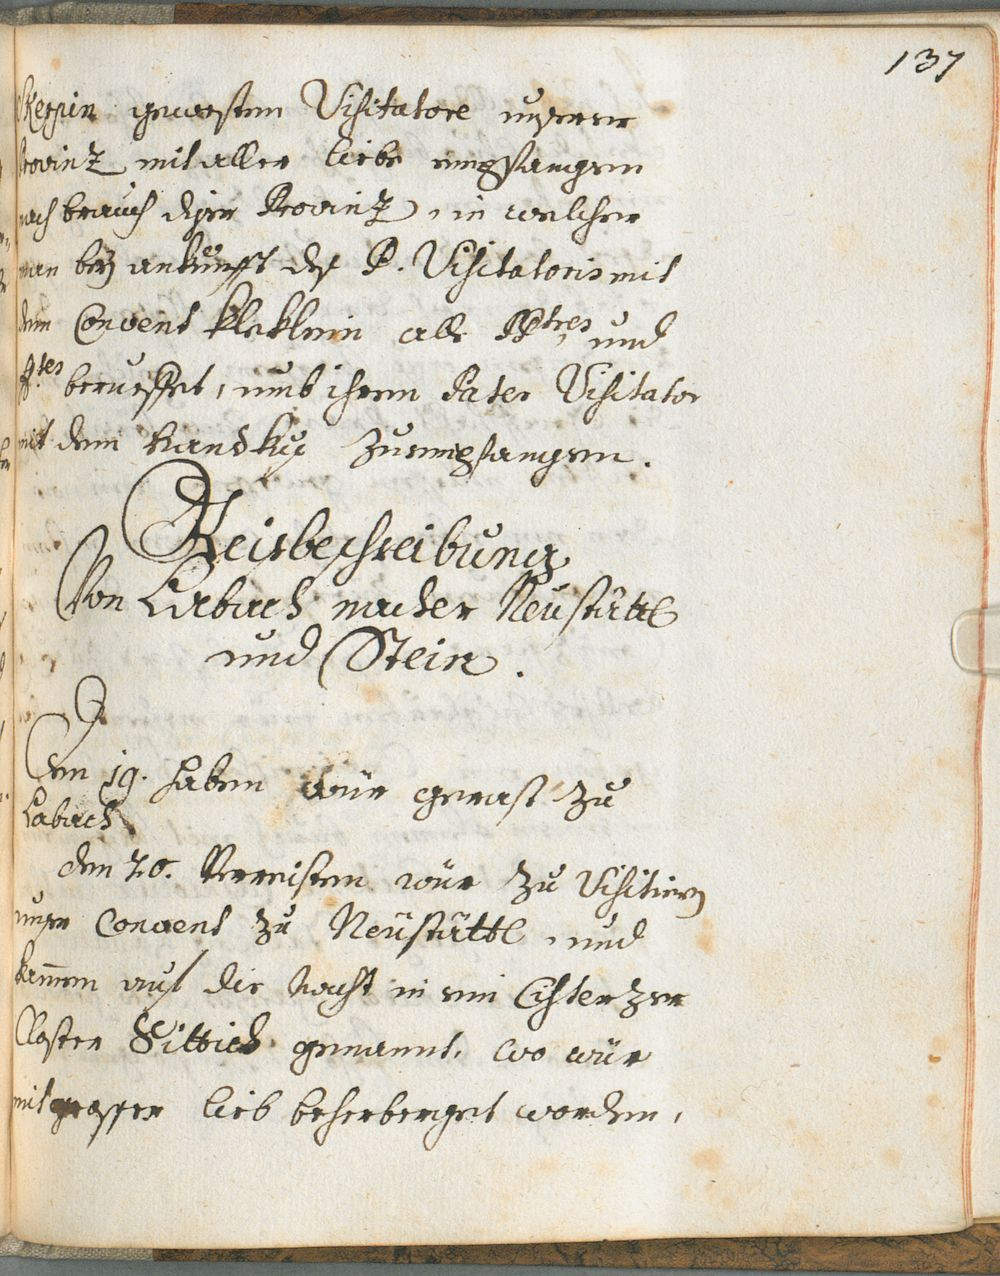 137
Skerpin gewesten Visitatore unserer
Provintz mit aller liebe empfangen
nach brauch diser Provintz, in welcher
man bey ankunfft des P. Visitatoris mit
dem Convent klöklein alle PPtres, und
ff.tes berueffet, umb ihren Pater Visitator
mit dem Handkuß zuempfangen.
Reisbeschreibung
Von Labach nacher Neüstättl
und Stein.
Den 19. haben wür gerast zu
Labach
den 20. Verreisten wür zu Visitiern
unser Convent zu Neüstättl, und
kam̅en auf die Nacht in ein Cisterzer
Closter Sittich genannt, wo wür
mit grosser lieb beherberget worden,